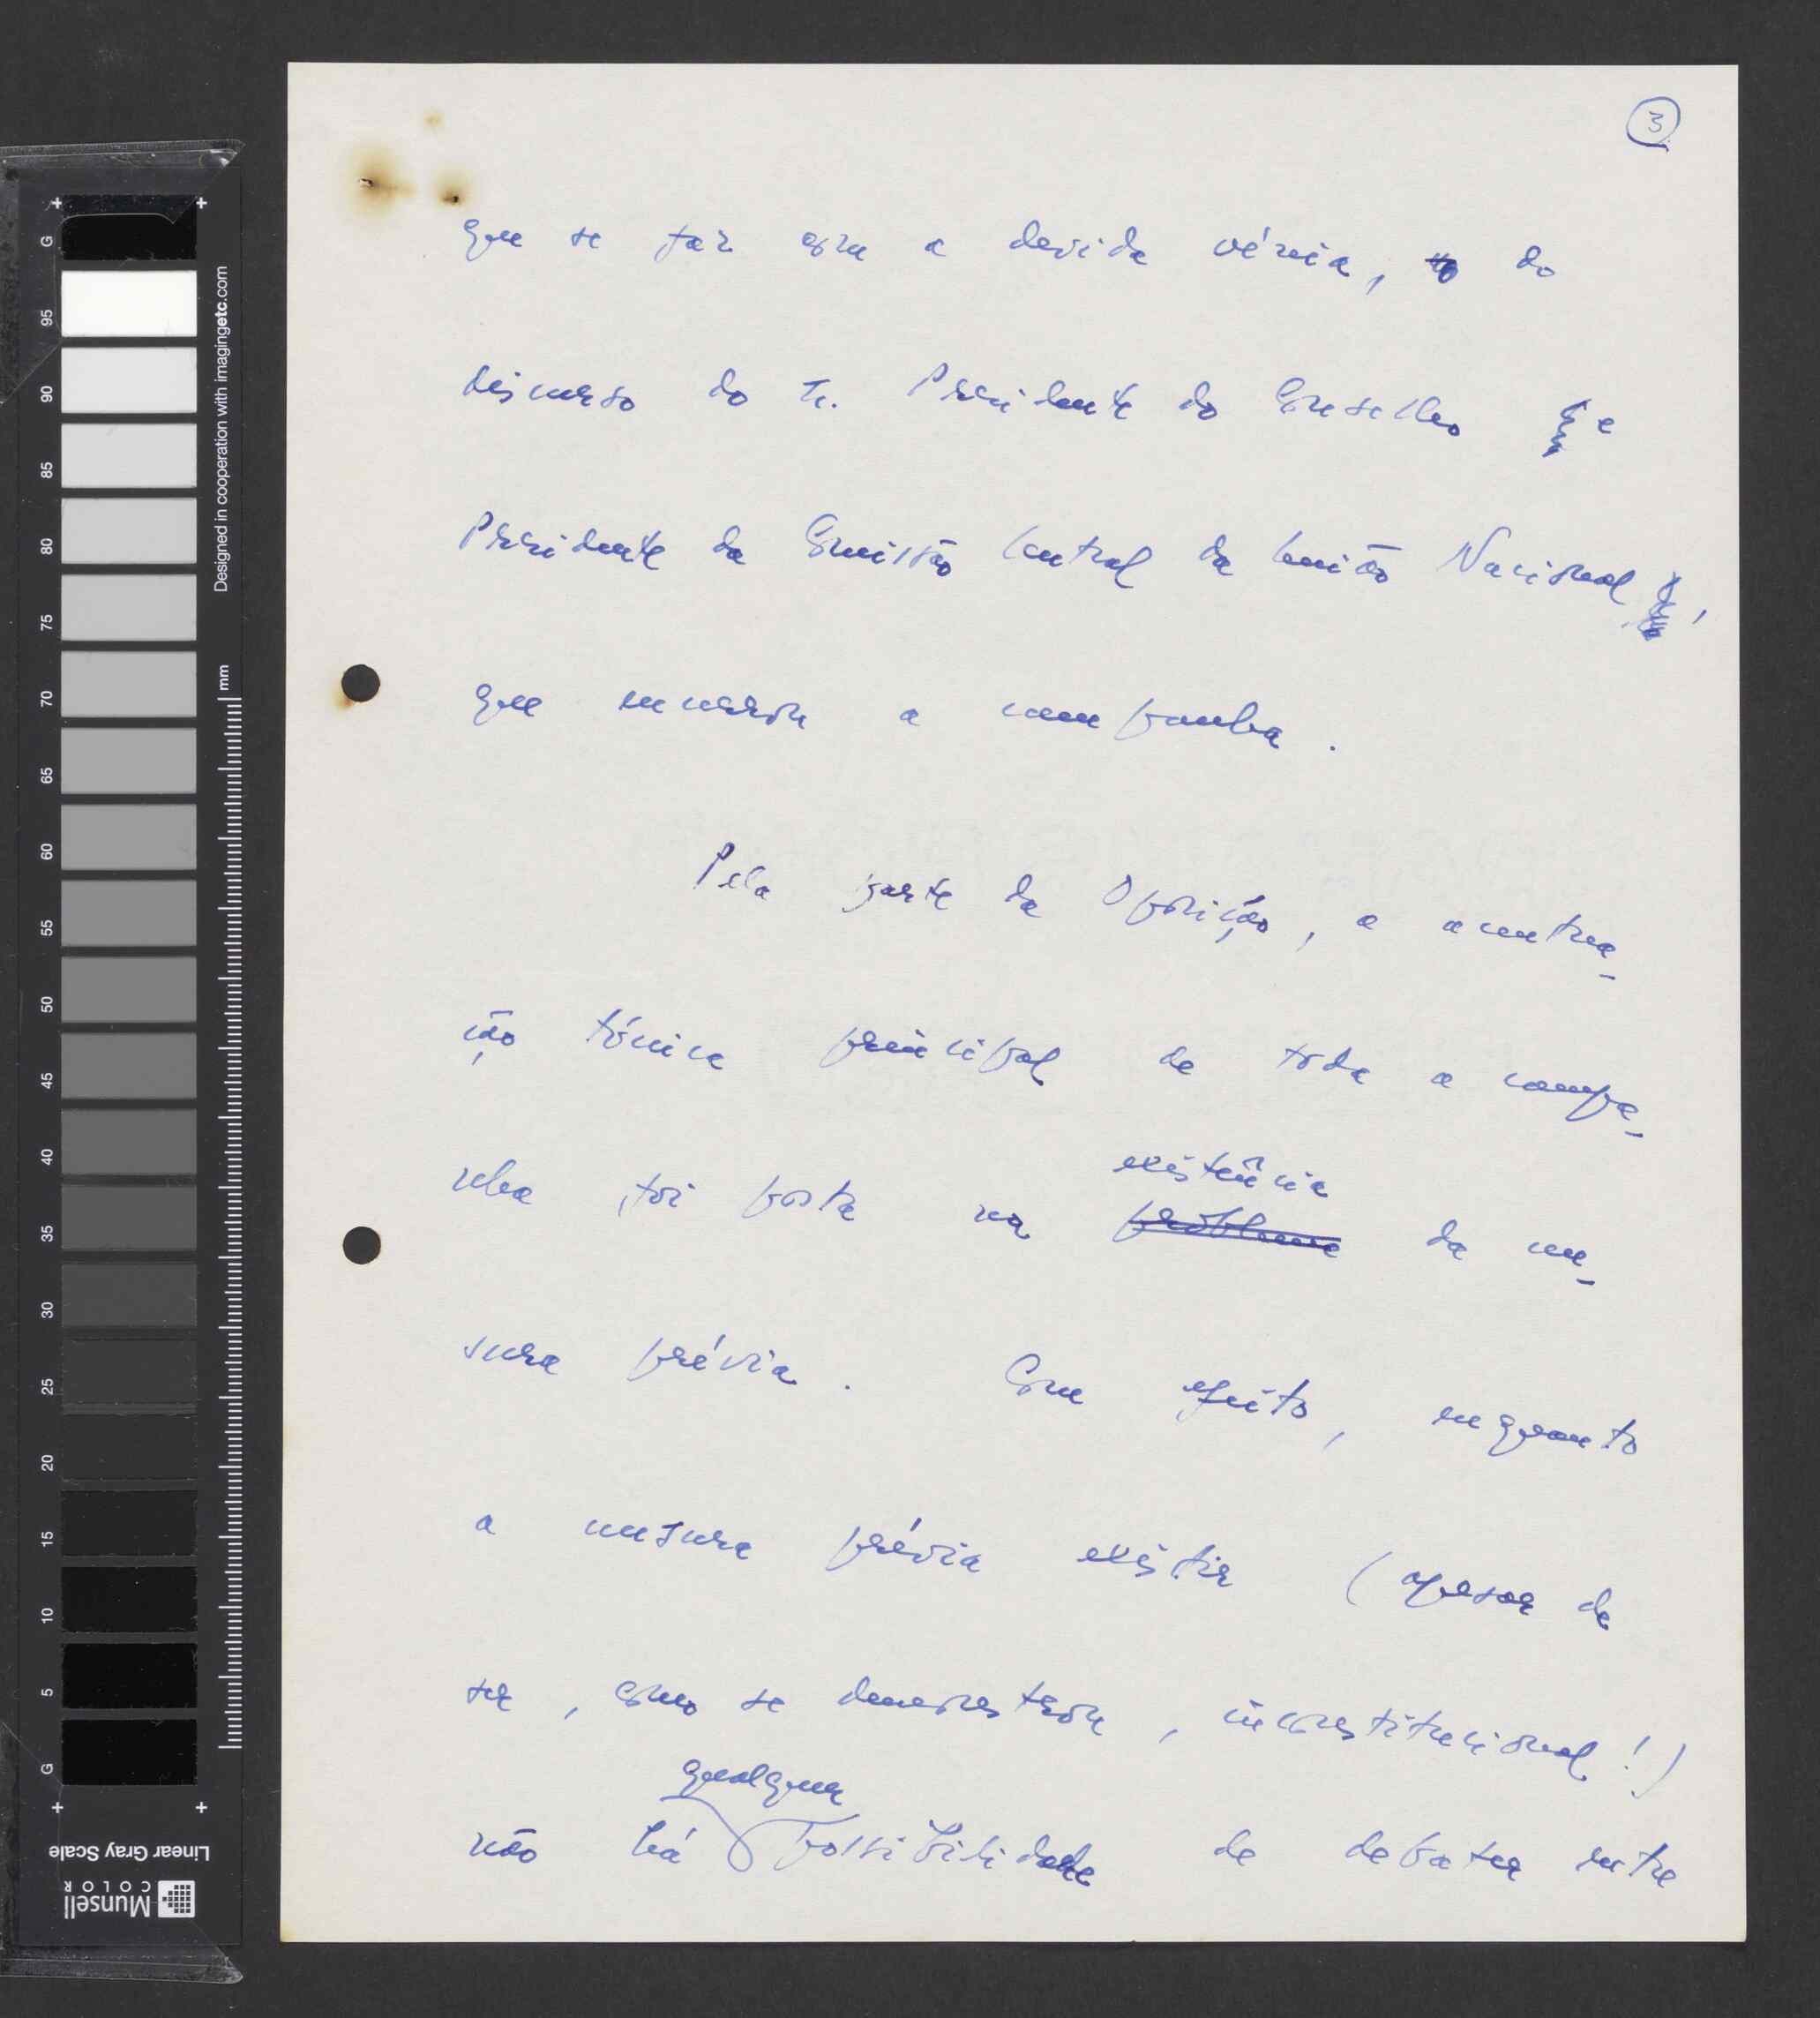 3
que se faz com a devida vénia, do
discurso do Sr. Presidente do Conselho e
Presidente da Comissão Central da União Nacional,
que encerrou a campanha.
Pela parte da Oposição, a acentua-
ção tónica principal de toda a campa-
nha foi posta na existência problema da cen-
sura prévia. Com efeito, enquanto
a censura prévia existir (apesar de
ser, como se demonstrou, inconstitucional!)
não há qualquer possibilidade de debater entre
G 95 90 85 80 75 70 65 60 55 50 45 40 35 30 25 20 15 10 5 G
Designed in cooperation with imagingetc.com
mm
Linear Gray Scale
Munsell
COLOR